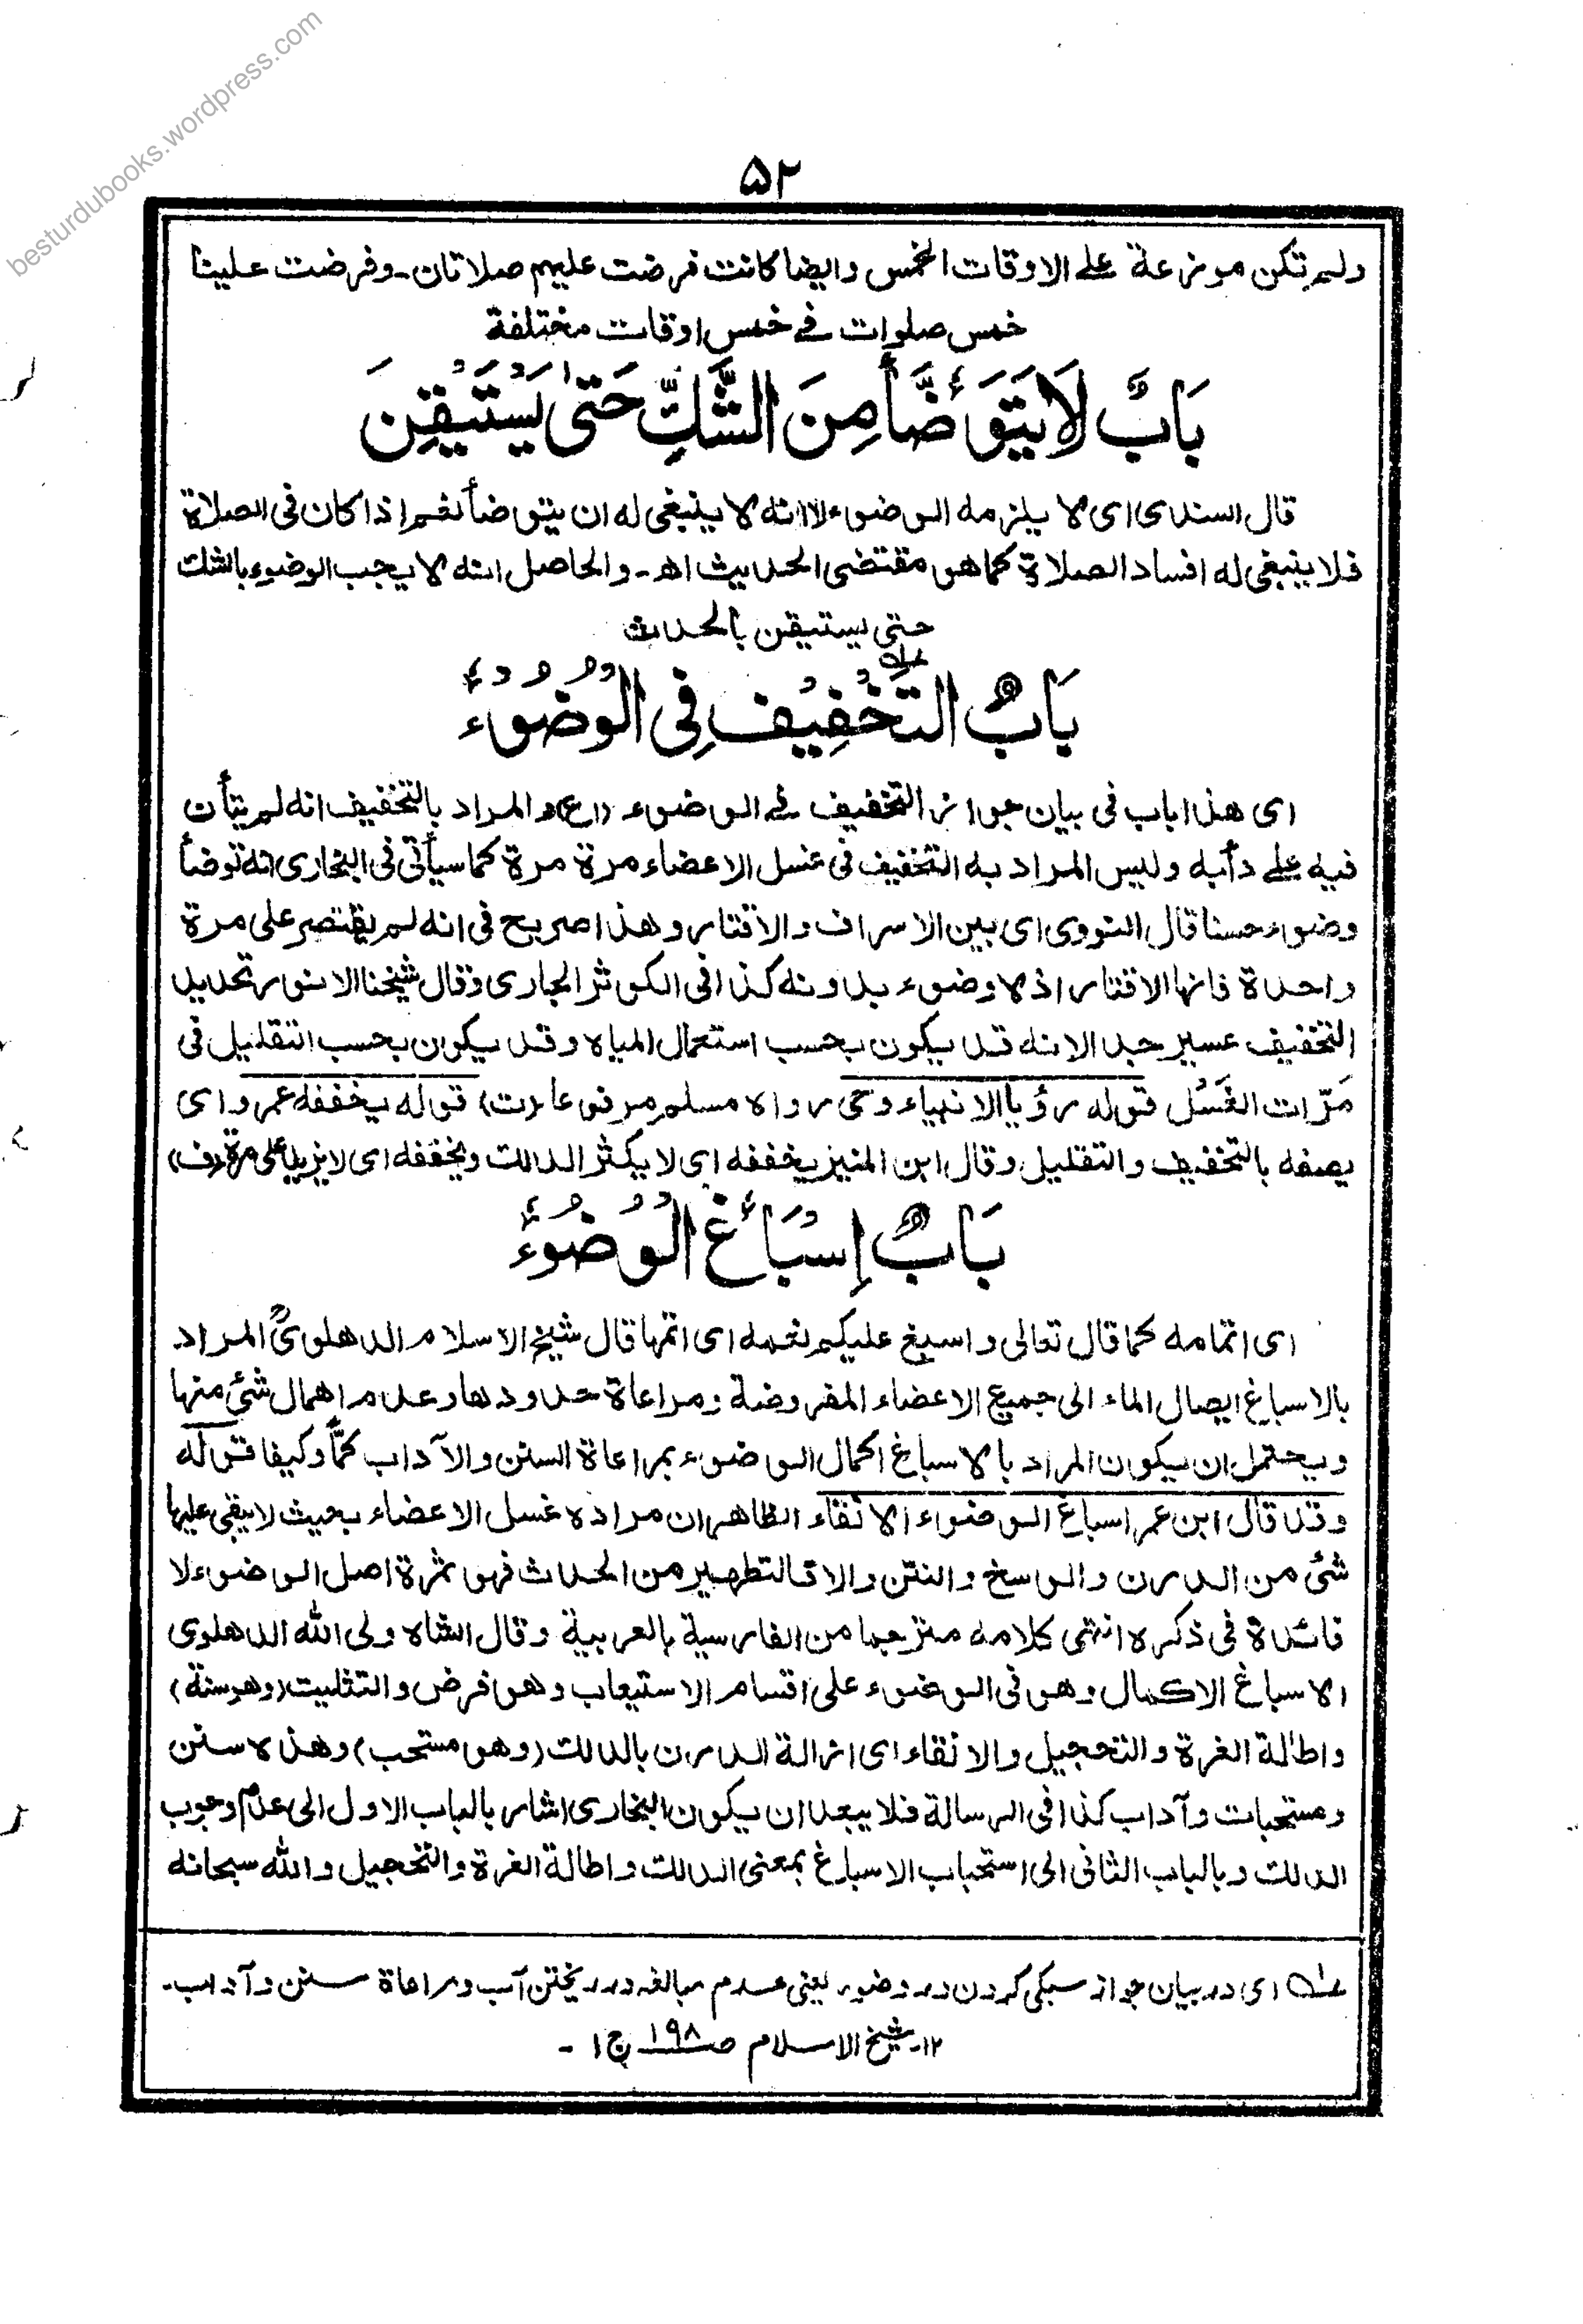 besturdubooks.wordpress.com
۵۲
ولم تكن موزعة على الاوقات الخمس وايضا كانت فرضت عليهم صلاتان۔ وفرضت علينا
خمس صلوات في خمس اوقات مختلفة
بَابٌ لَا يَتَوَضَّأُ مِنَ الشَّكِّ حَتّٰى يَسْتَيْقِنَ
قال السندى اى لا يلزمه الوضوء لا انه لا ينبغى له ان يتوضأ نعم اذا كان فى الصلاة
فلا ينبغى له افساد الصلاة كما هو مقتضى الحديث اھ۔ والحاصل انه لا يجب الوضوء بالشك
حتى يستيقن بالحدث
بَابُ التَّخْفِيْفِ فِى الْوُضُوْءِ ؎۱
اى هذا باب فى بيان جواز التخفيف فى الوضوء (ع) والمراد بالتخفيف انه لم يتأن
فيه على دأبه وليس المراد به التخفيف فى غسل الاعضاء مرة مرة كما سيأتى فى البخارى انه توضأ
وضوء حسنا قال النووى اى بين الاسراف والاقتار وهذا صريح فى انه لم يقتصر على مرة
واحدة فانها الاقتار اذ لا وضوء بدونه كذا فى الكوثر الجارى وقال شيخنا الانور تحديد
التخفيف عسير جدا لانه قد يكون بحسب استعمال المياه وقد يكون بحسب التقليل فى
مَرّات الغَسْل قوله رؤيا الانبياء وحى رواه مسلم مرفوعا (ت) قوله يخففه عمرو اى
يصفه بالتخفيف والتقليل وقال ابن المنير يخففه اى لا يكثر الدلك ويخففه اى لا يزيد على مرة (ف)
بَابُ إِسْبَاغِ الْوُضُوْءِ
اى اتمامه كما قال تعالى واسبغ عليكم نعمه اى اتمها قال شيخ الاسلام الدهلوىؒ المراد
بالاسباغ ايصال الماء الى جميع الاعضاء المفروضة ومراعاة حدودها وعدم اهمال شئ منها
ويحتمل ان يكون المراد بالاسباغ اكمال الوضوء بمراعاة السنن والآداب كمًّا وكيفا قوله
وقد قال ابن عمر اسباغ الوضوء الانقاء الظاهر ان مراده غسل الاعضاء بحيث لا يبقى عليها
شئ من الدرن والوسخ والنتن والا فالتطهير من الحدث فهو ثمرة اصل الوضوء لا
فائدة فى ذكره انتهى كلامه مترجما من الفارسية بالعربية وقال الشاه ولى الله الدهلوى
الاسباغ الاكمال وهو فى الوضوء على اقسام الاستيعاب وهو فرض والتثليت (وهو سنة)
واطالة الغرة والتحجيل والانقاء اى ازالة الدرن بالدلك (وهو مستحب) وهذه سنن
ومستحبات وآداب كذا فى الرسالة فلا يبعد ان يكون البخارى اشار بالباب الاول الى عدم وجوب
الدلك وبالباب الثانى الى استحباب الاسباغ بمعنى الدلك واطالة الغرة والتحجيل والله سبحانه
؎۱ اى در بيان جواز سبكى كردن در وضو يعنى عدم مبالغه در ريختن آب ومراعاة سنن وآداب۔
۱۲۔ شيخ الاسلام صـ ۱۹۸ ج ۱ -